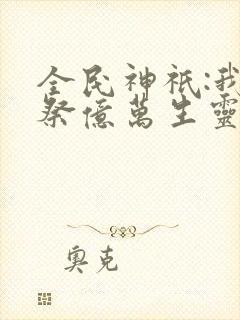 全民神祇:我
祭億萬生靈
奧克